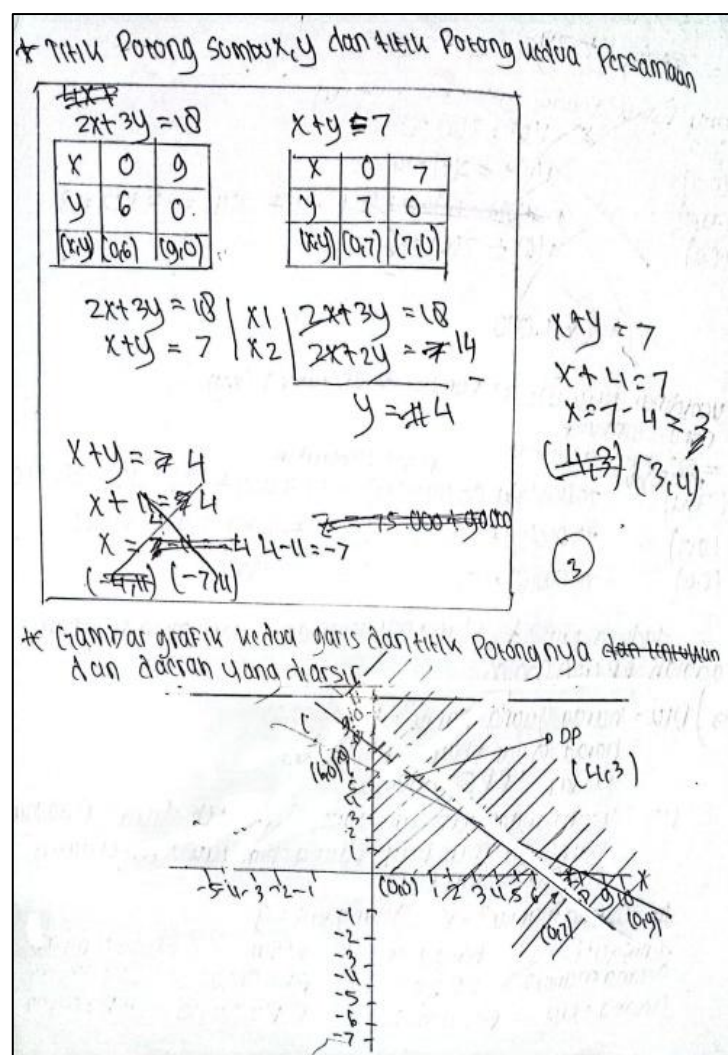 * Titik Potong sumbu x,y dan titik Potong kedua Persamaan
2x+3y=18 x+y=7
x 0 9 x 0 7
y 6 0 y 7 0
(x,y) (0,6) (9,0) (x,y) (0,7) (7,0)
2x+3y=18 | x1 | 2x+3y=18
x+y=7 | x2 | 2x+2y=14
y=4
x+y=7
x+4=7
x=7-4=3
(3,4)
x+y=4
x = 4-11=-7
(-7,11)
z = 75.000+90.000
3
* Gambar grafik kedua garis dan titik Potongnya
dan daerah yang diarsir
DP
(4,3)
(6,0)
-5 -4 -3 -2 -1 (0,0) 1 2 3 4 5 6 7 8 9 10 x
(0,7) (0,9)
-1
-2
-3
-4
-5
-6
-7